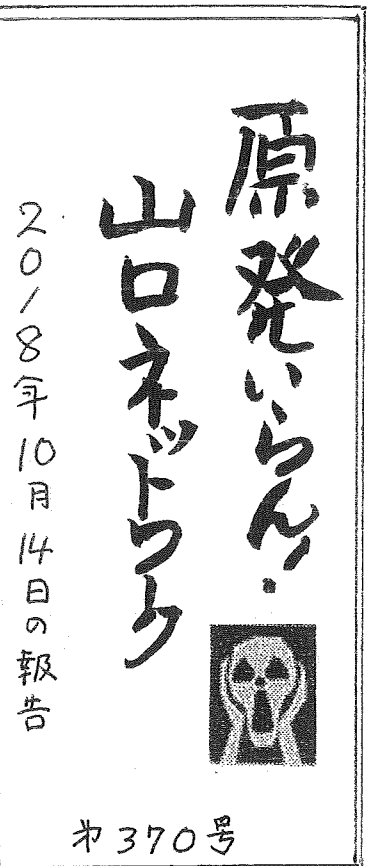 原発いらん！
山口ネットワーク
2018年10月14日の報告
㐧370号